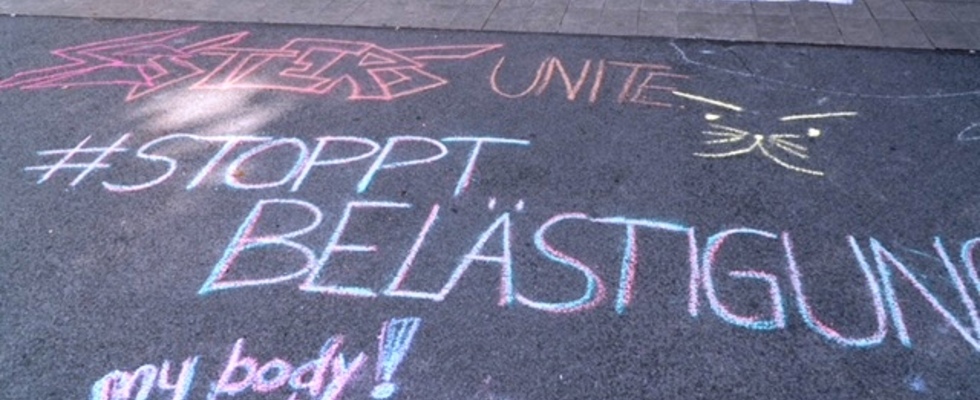 SISTERS UNITE
#STOPPT
BELÄSTIGUN
my body!